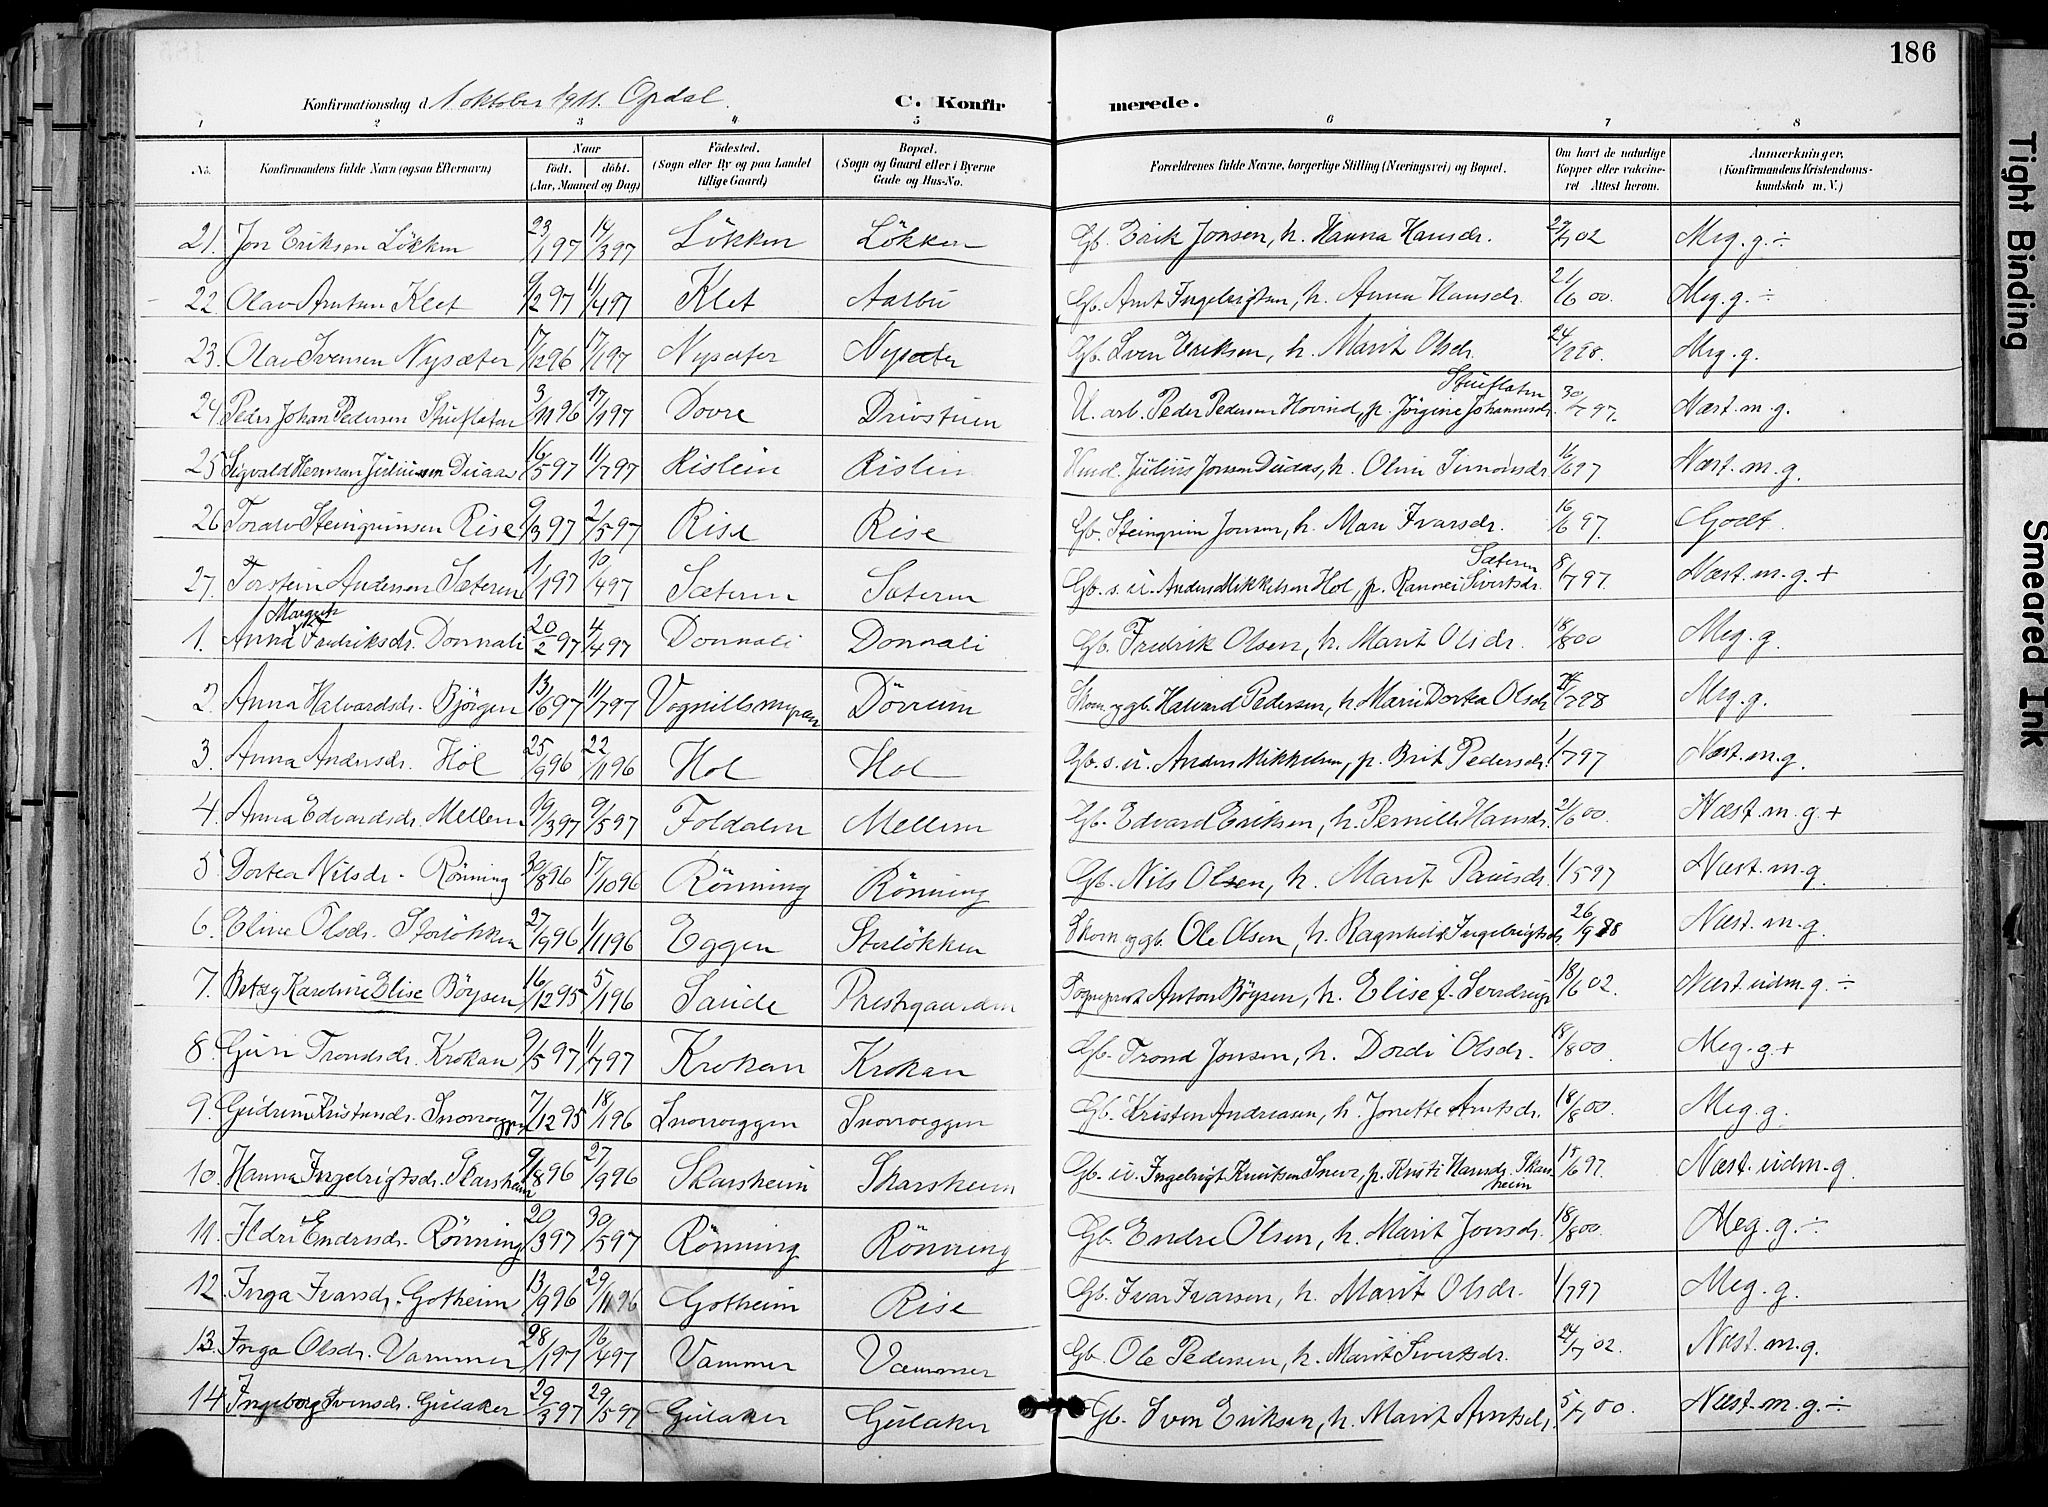 186
Konfirmationsdag d 1 oktober 1911. Opdal. C. Konfirmerede.
1 2 3 4 5 6 7 8
No. Konfirmandens fulde Navn (ogsaa Efternavn) Naar født. døbt. (Aar, Maaned og Dag) Fødested. (Sogn eller By og paa Landet tillige Gaard) Bopæl. (Sogn og Gaard eller i Byerne Gade og Hus-No. Forældrenes fulde Navne, borgerlige Stilling (Næringsvei) og Bopæl. Om havt de naturlige Kopper eller vakcineret Attest herom. Anmærkninger. (Konfirmandens Kristendomskundskab m. V.)
21. Jon Eriksen Løkken 23/1 97 14/3 97 Løkken Løkken Gb. Erik Jonsen, h. Hanna Hansdr. 02 Meg. g. ÷
22. Olav Arntsen Klet 9/2 97 11/4 97 Klet Aalbu Gb. Arnt Ingebrigtsen, h. Anna Hansdr. 21/6 00. Meg. g. ÷
23. Olav Svensen Nysæter 17/12 96 17/1 97 Nysæter Nysæter Gb. Sven Eriksen, h. Marit Olsdr. 98. Meg. g.
24. Peder Johan Pedersen Stuiflaten 3/11 96 17/1 97 Dovre Drivstuen U. arb. Peder Pedersen Hovind, p. Jørgine Johannesdr. Stuiflaten 30/7 97. Næst. m. g.
25 Sigvald Herman Juliussen Duaas 16/5 97 11/7 97 Rislein Rislin Husd. Julius Jonsen Duaas, h. Oline Simonsdr 16/6 97 Næst. m. g.
26 Toralv Steingrimsen Rise 9/3 97 2/5 97 Rise Rise Gb. Steingrim Jonsen, h. Mari Ivarsdr. 16/6 97. Godt.
27. Torstein Andersen Sæteren 1/1 97 10/4 97 Sæteren Sæteren Gb. s. u. Anders Mikkelsen Hol, p. Rannei Sivertsdr. Sæteren 8/7 97. Næst. m. g. +
1. Anna Margrete Fredriksdr. Donnali 20/2 97 4/4 97 Donnali Donnali Gb. Fredrik Olsen, h. Marit Olsdr. 18/8 00 Meg. g.
2. Anna Halvardsdr. Bjørgen 13/6 97 11/7 97 Vognillsmyran Dørrum Skom. og gb. Halvard Pedersen, h. Marie Dortea Olsdr 98 Meg. g.
3. Anna Andersdr. Hol 25/9 96 22/11 96 Hol Hol Gb. s. u. Anders Mikkelsen, p. Brit Pedersdr. 1/7 97 Næst. m. g.
4. Anna Edvardsdr. Mellem 19/3 97 9/5 97 Foldalen Mellem Gb. Edvard Eriksen, h. Pernille Hansdr. 21/6 00. Næst. m. g. +
5 Dortea Nilsdr. Rönning 30/8 96 17/10 96 Rönning Rönning Gb. Nils Olsen, h. Marit Paulsdr. 1/5 97 Næst. m. g.
6. Eline Olsdr. Storløkken 27/9 96 1/11 96 Eggen Storløkken Skom. og gb. Ole Olsen, h. Ragnhild Ingebrigtsdr 26/9 98 Næst. m. g.
7. Betzy Karoline Elise Böysen 16/12 95 5/1 96 Saude Prestgaarden Sogneprest Anton Böysen, h. Elise f. 18/6 02. Næst. udm. g. ÷
8. Guri Trondsdr. Krokan 9/5 97 11/7 97 Krokan Krokan Gb. Trond Jonsen, h. Dordi Olsdr. 18/8 00. Meg. g. +
9. Gudrun Kristensdr. Snoroeggen 7/12 95 18/1 96 Snoroeggen Snoroeggen Gb. Kristen Andreasen, h. Jonette Arntsdr. 18/8 00. Meg. g.
10. Hanna Ingebrigtsdr. Skarsheim 9/8 96 27/9 96 Skarsheim Skarsheim Gb. u. Ingebrigt Knutsen Snuv, p. Kristi Hansdr. Skarsheim 15/6 97. Næst. udm. g
11. Ildri Endresdr. Rönning 20/3 97 30/5 97 Rönning Rönning Gb. Endre Olsen, h. Marit Jonsdr. 18/8 00. Meg. g. ÷
12. Inga Ivarsdr. Gotheim 13/9 96 29/11 96 Gotheim Rise Gb. Ivar Ivarsen, h. Marit Olsdr. 1/7 97 Meg. g.
13. Inga Olsdr. Vammer 28/1 97 16/4 97 Vammer Vammer Gb. Ole Pedersen, h. Marit Sivertsdr. 24/7 02. Næst. m. g.
14 Ingeborg Svensdr. Gulaker 29/3 97 29/5 97 Gulaker Gulaker Gb. Sven Eriksen, h. Marit Arntsdr. 5/7 00. Næst. m. g. ÷
Tight Binding
Smeared Ink